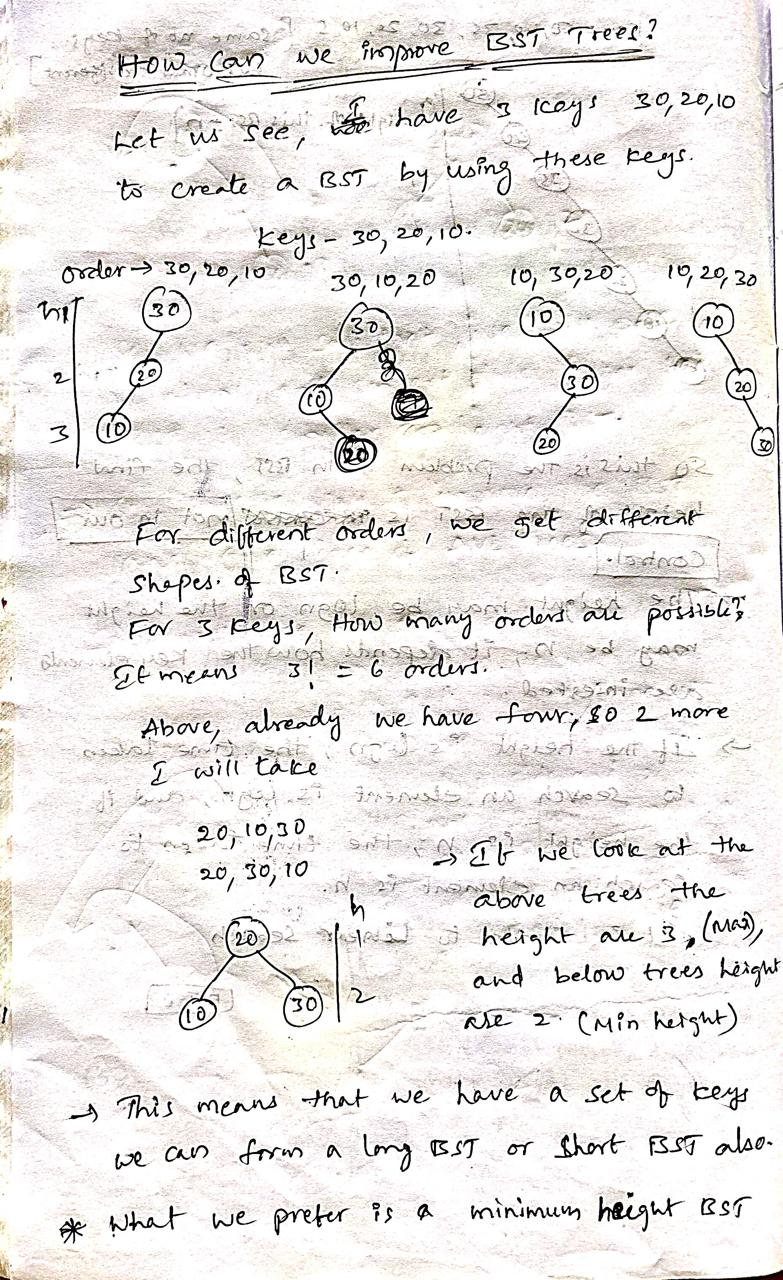 How can we improve BST Trees?
Let us see, I have 3 keys 30,20,10
to create a BST by using these keys.
Keys - 30, 20, 10.
order → 30, 20, 10
30, 10, 20
10, 30, 20
10, 20, 30
h 1
2
3
30
20
10
30
10
20
10
30
20
10
20
30
For different orders, we get different
shapes. of BST.
For 3 keys, How many orders are possible?
It means 3! = 6 orders.
Above, already we have four, so 2 more
I will take
20, 10, 30
20, 30, 10
20
10
30
h
1
2
→ If we look at the
above trees the
height are 3, (Max),
and below trees height
are 2. (Min height)
→ This means that we have a set of keys
we can form a long BST or short BST also.
* What we prefer is a minimum height BST